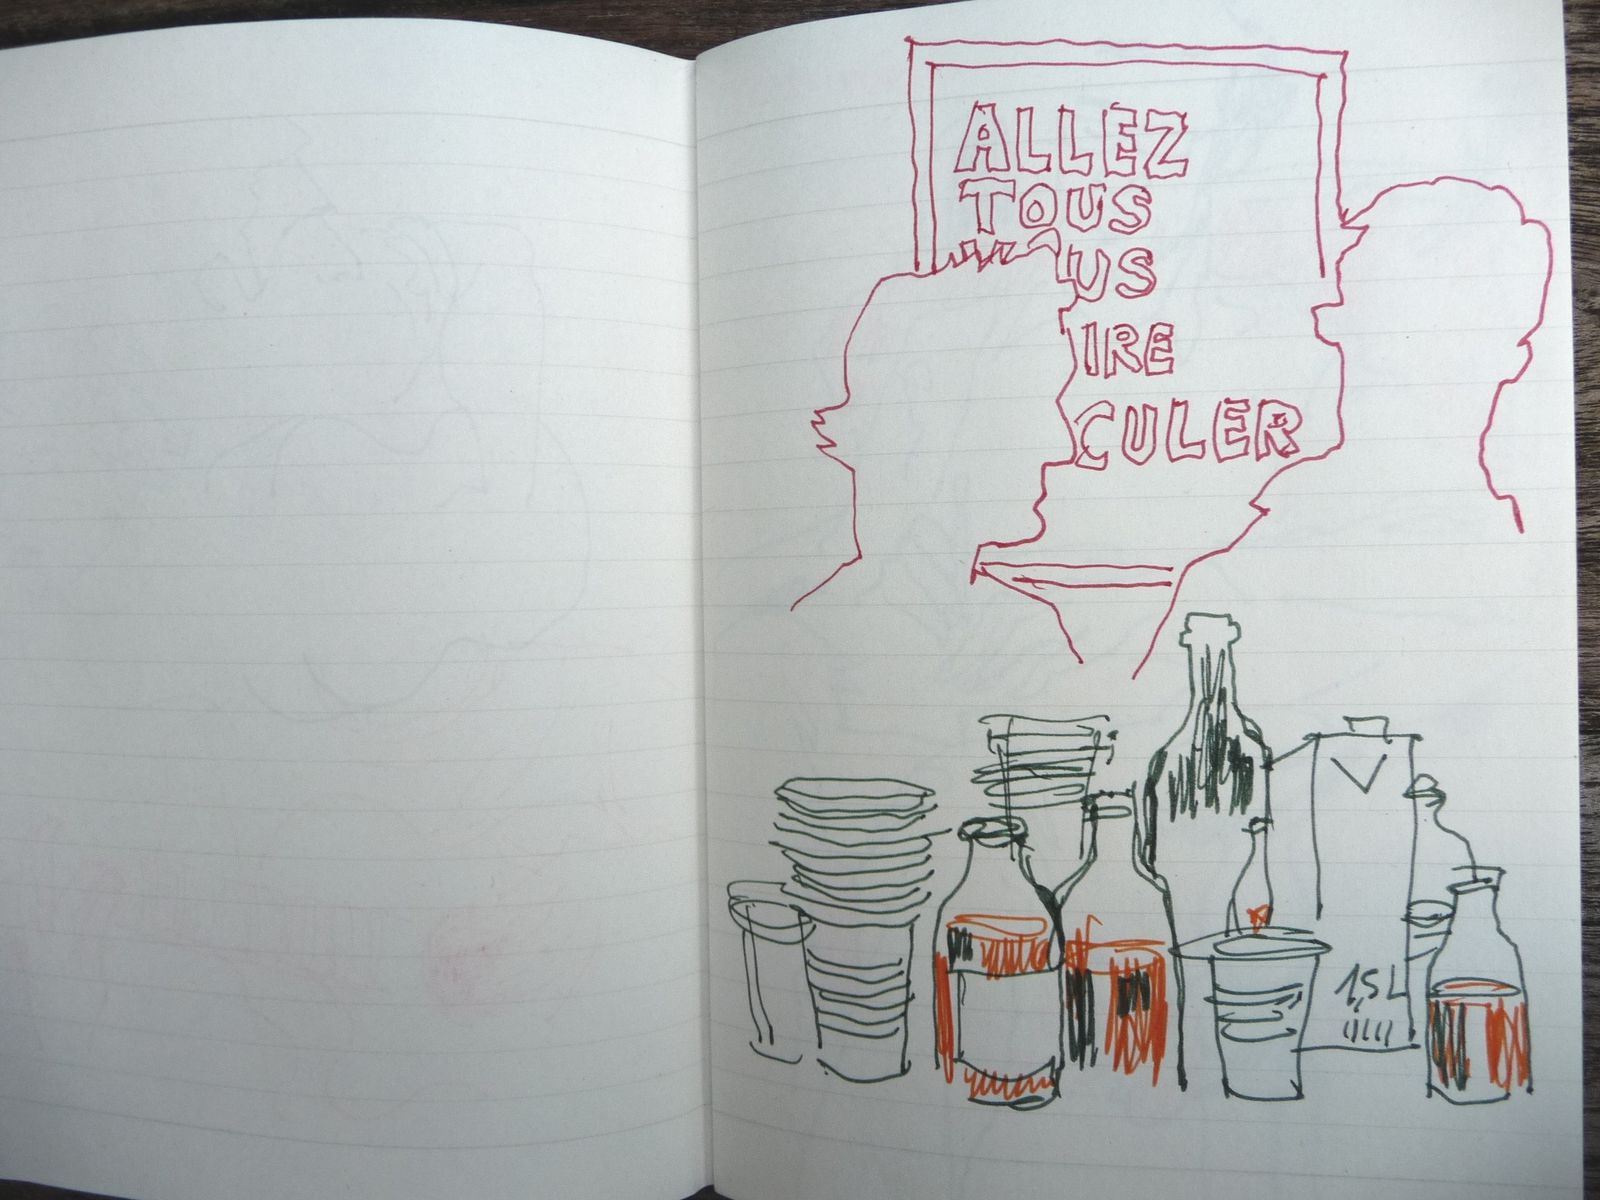 ALLEZ
TOUS
US
IRE
CULER
1,5L